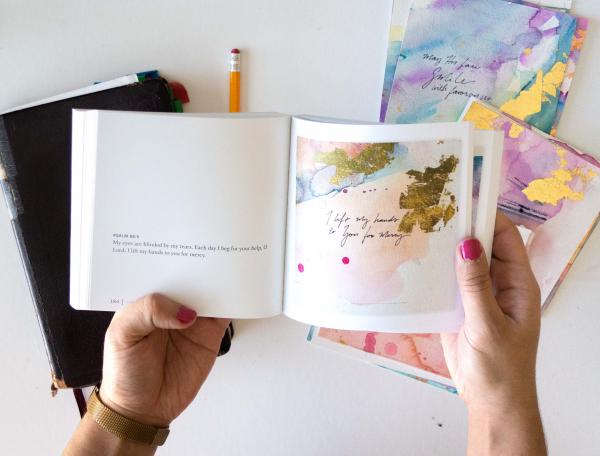 PSALM 88:9
My eyes are blinded by my tears. Each day I beg for your help, O
Lord; I lift my hands to you for mercy.
184
I lift my hands
to You for mercy
may His face
smile
with favor on us